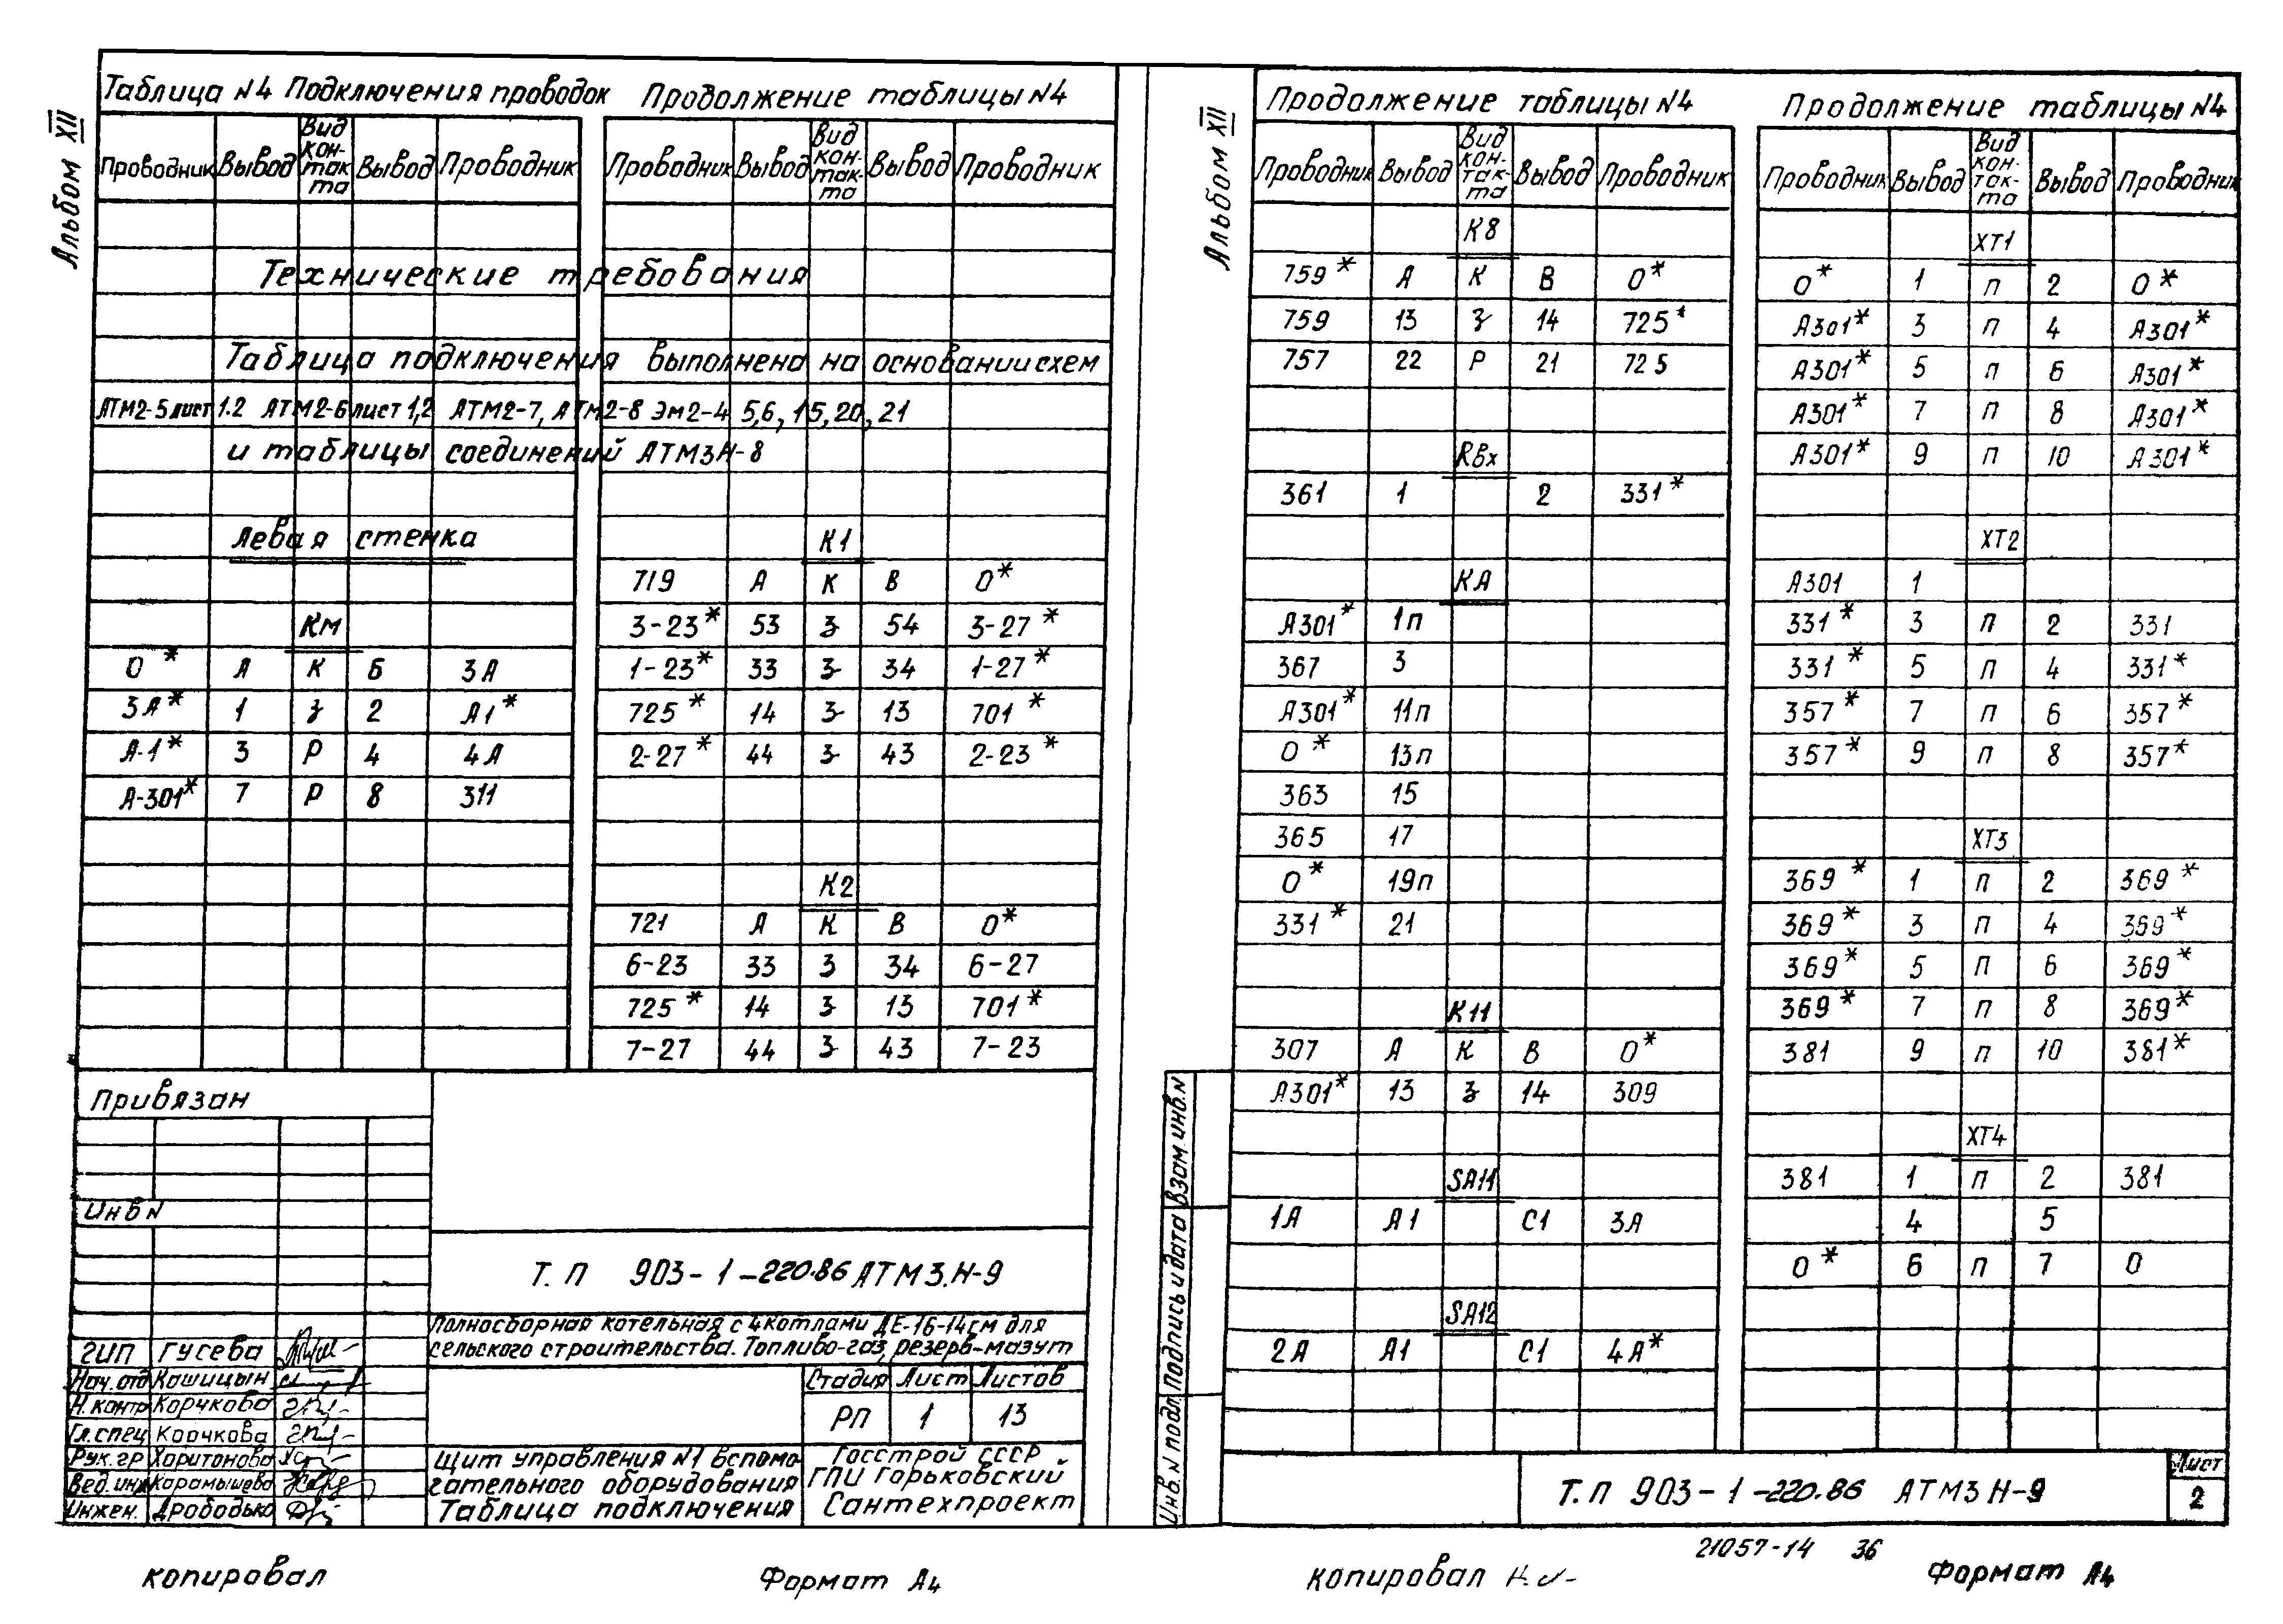 Альбом XII
Таблица №4 Подключения проводок
Проводник Вывод Вид контакта Вывод Проводник
Технические требования
Таблица подключения выполнена на основании схем
АТМ2-5лист 1.2 АТМ2-6лист 1,2 АТМ2-7, АТМ2-8 ЭМ2-4 5,6, 15,20, 21
и таблицы соединений АТМ3Н-8
Левая стенка
КМ
0* А К Б 3А
3А* 1 З 2 А1*
А-1* 3 Р 4 4А
А-301* 7 Р 8 311
Продолжение таблицы №4
Проводник Вывод Вид контакта Вывод Проводник
К1
719 А К В 0*
3-23* 53 З 54 3-27*
1-23* 33 З 34 1-27*
725* 14 З 13 701*
2-27* 44 З 43 2-23*
К2
721 А К В 0*
6-23 33 З 34 6-27
725* 14 З 13 701*
7-27 44 З 43 7-23
Привязан
Инв №
Т.П 903-1-220.86 АТМ3.Н-9
Полносборная котельная с 4 котлами ДЕ-16-14гм для
сельского строительства. Топливо-газ, резерв-мазут
ГИП Гусева
Нач.отд Кашицын
Н.контр Корчкова
Гл.спец Корчкова
Рук.гр Харитонова
Вед.инж Карамышева
Инжен. Дрободько
Стадия Лист Листов
РП 1 13
Щит управления №1 вспомо-
гательного оборудования
Таблица подключения
Госстрой СССР
ГПИ Горьковский
Сантехпроект
Копировал
Формат А4
Альбом XII
Продолжение таблицы №4
Проводник Вывод Вид контакта Вывод Проводник
К8
759* А К В 0*
759 13 З 14 725*
757 22 Р 21 725
Rвх
361 1 2 331*
КА
А301* 1п
367 3
А301* 11п
0* 13п
363 15
365 17
0* 19п
331* 21
К11
307 А К В 0*
А301* 13 З 14 309
SА11
1А А1 С1 3А
SА12
2А А1 С1 4А*
Продолжение таблицы №4
Проводник Вывод Вид контакта Вывод Проводник
ХТ1
0* 1 п 2 0*
А301* 3 п 4 А301*
А301* 5 п 6 А301*
А301* 7 п 8 А301*
А301* 9 п 10 А301*
ХТ2
А301 1
331* 3 п 2 331
331* 5 п 4 331*
357* 7 п 6 357*
357* 9 п 8 357*
ХТ3
369* 1 п 2 369*
369* 3 п 4 369*
369* 5 п 6 369*
369* 7 п 8 369*
381 9 п 10 381*
ХТ4
381 1 п 2 381
4 5
0* 6 п 7 0
Инв.№ подл. Подпись и дата Взам.инв.№
Т.П 903-1-220.86 АТМ3Н-9
Лист
2
21057-14 36
Копировал
Формат А4